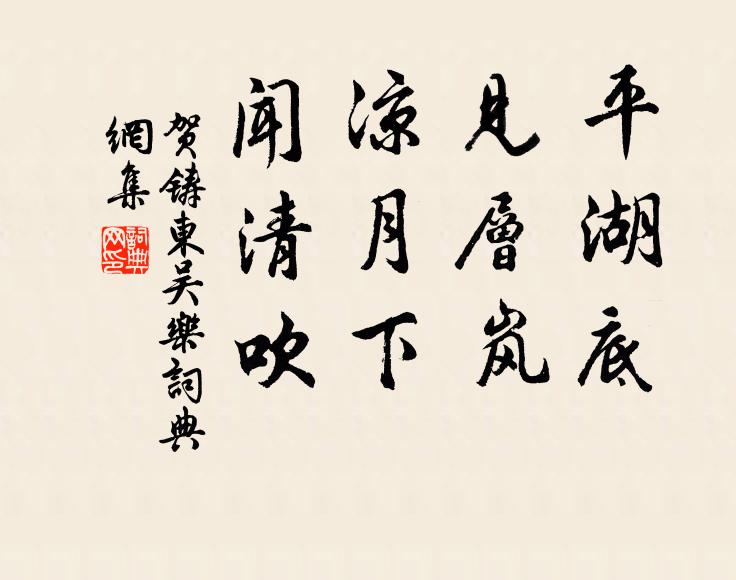 平湖底
見層岚
凉月下
聞清吹
贺鑄東吴樂詞典
網集
詞典
网印